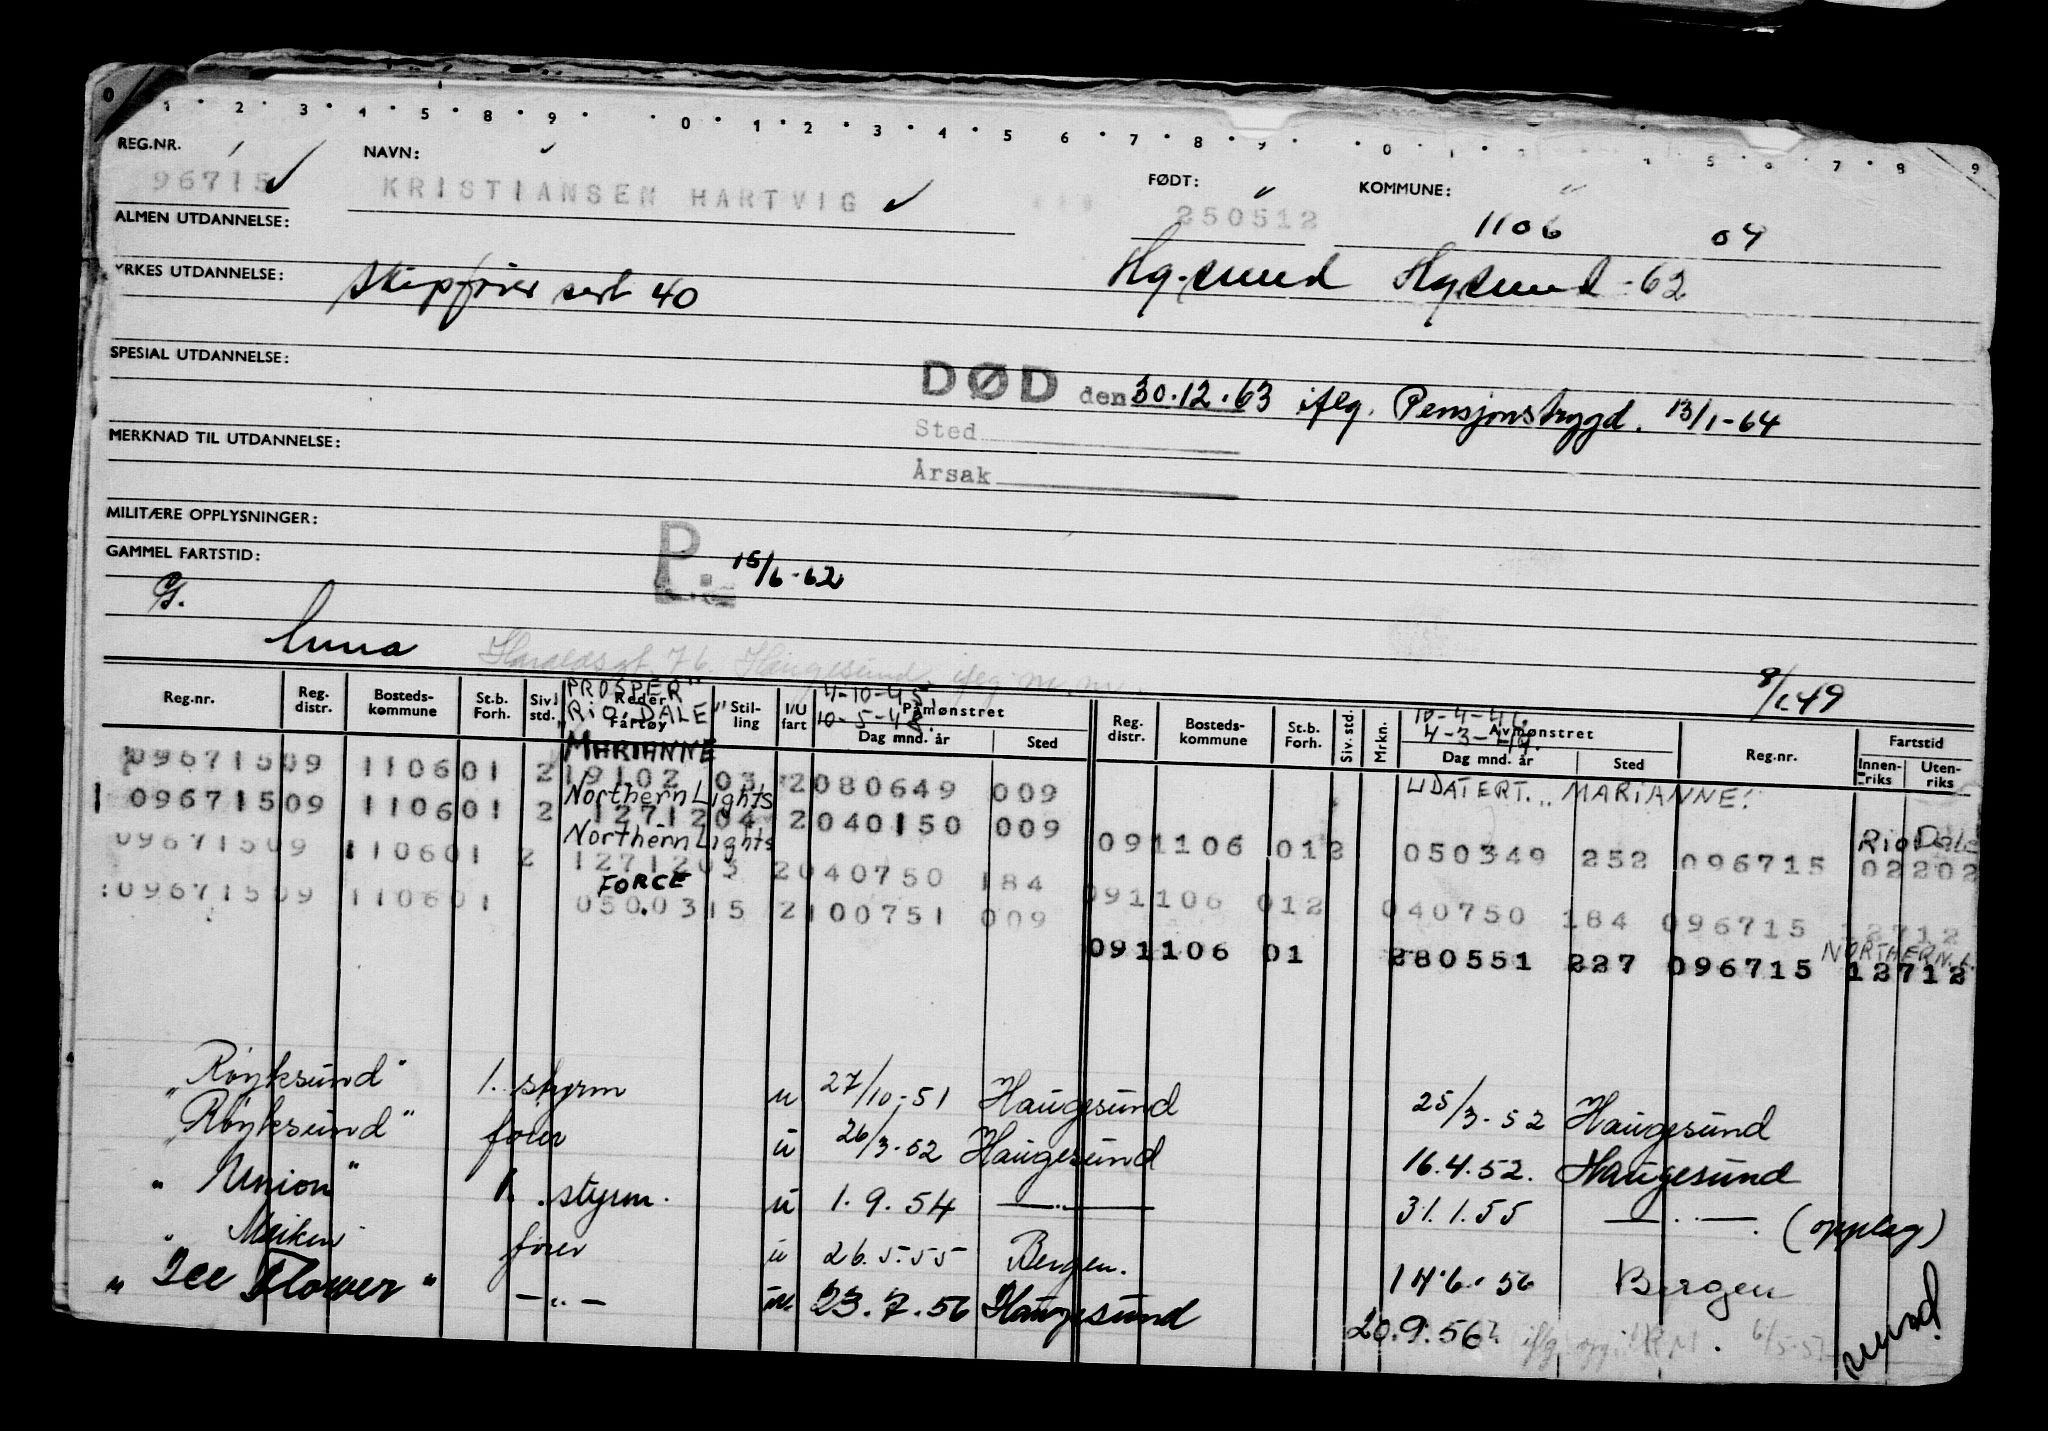 0 1 2 3 4 5 8 9 0 1 2 3 4 5 6 7 8 9 0 1 4 5 6 7 8 9
REG.NR. NAVN: FØDT: KOMMUNE:
96715 KRISTIANSEN HARTVIG 250512 1106 04
ALMEN UTDANNELSE:
YRKES UTDANNELSE: skipsfører sert 40 Hg.sund Hg.sund -62
SPESIAL UTDANNELSE:
DØD den 30.12.63 iflg. Pensjonstrygd. 13/1-64
Sted
MERKNAD TIL UTDANNELSE:
Årsak
MILITÆRE OPPLYSNINGER:
GAMMEL FARTSTID: P. 15/6-62
G.
Haraldsgt. 76. Haugesund. iflg. m.m.
8/1.49
"PROSPER" 4-10-45 10-4-46.
"RIO DALE" 10-5-48. 4-3-49.
Reg.nr. Reg. distr. Bosteds- kommune St.b. Forh. Siv. std. Rederi Fartøy Stil- ling I/U fart Påmønstret Dag mnd. år Sted Reg. distr. Bosteds- kommune St.b. Forh. Siv. std. Mrkn. Avmønstret Dag mnd. år Sted Reg.nr. Fartstid Innen- riks Uten- riks
MARIANNE
09671509 110601 2 19102 03 2 080649 009 UDATERT... MARIANNE!
Northern Lights
09671509 110601 2 12712 04 2 040150 009 Rio Dale
091106 012 050349 252 096715 02202
Northern Lights
09671509 110601 2 12712 03 2 040750 184
091106 012 040750 184 096715 12712
FORCE
09671509 110601 050.03 15 2 100751 009 NORTHERN.L.
091106 01 280551 227 096715 12712
"Røyksund" 1. styrm u 27/10-51 Haugesund 25/3-52 Haugesund
"Røyksund" fører u 26/3-52 Haugesund 16.4.52. Haugesund
"Union" 1. styrm. u 1.9.54 —"— 31.1.55 —"—. (opplag)
"Meiken" fører u 26.5.55 Bergen. 14.6.56 Bergen
"Ice Flower" —"— u. 23.7.56 Haugesund 20.9.56? iflg. 6/5-57